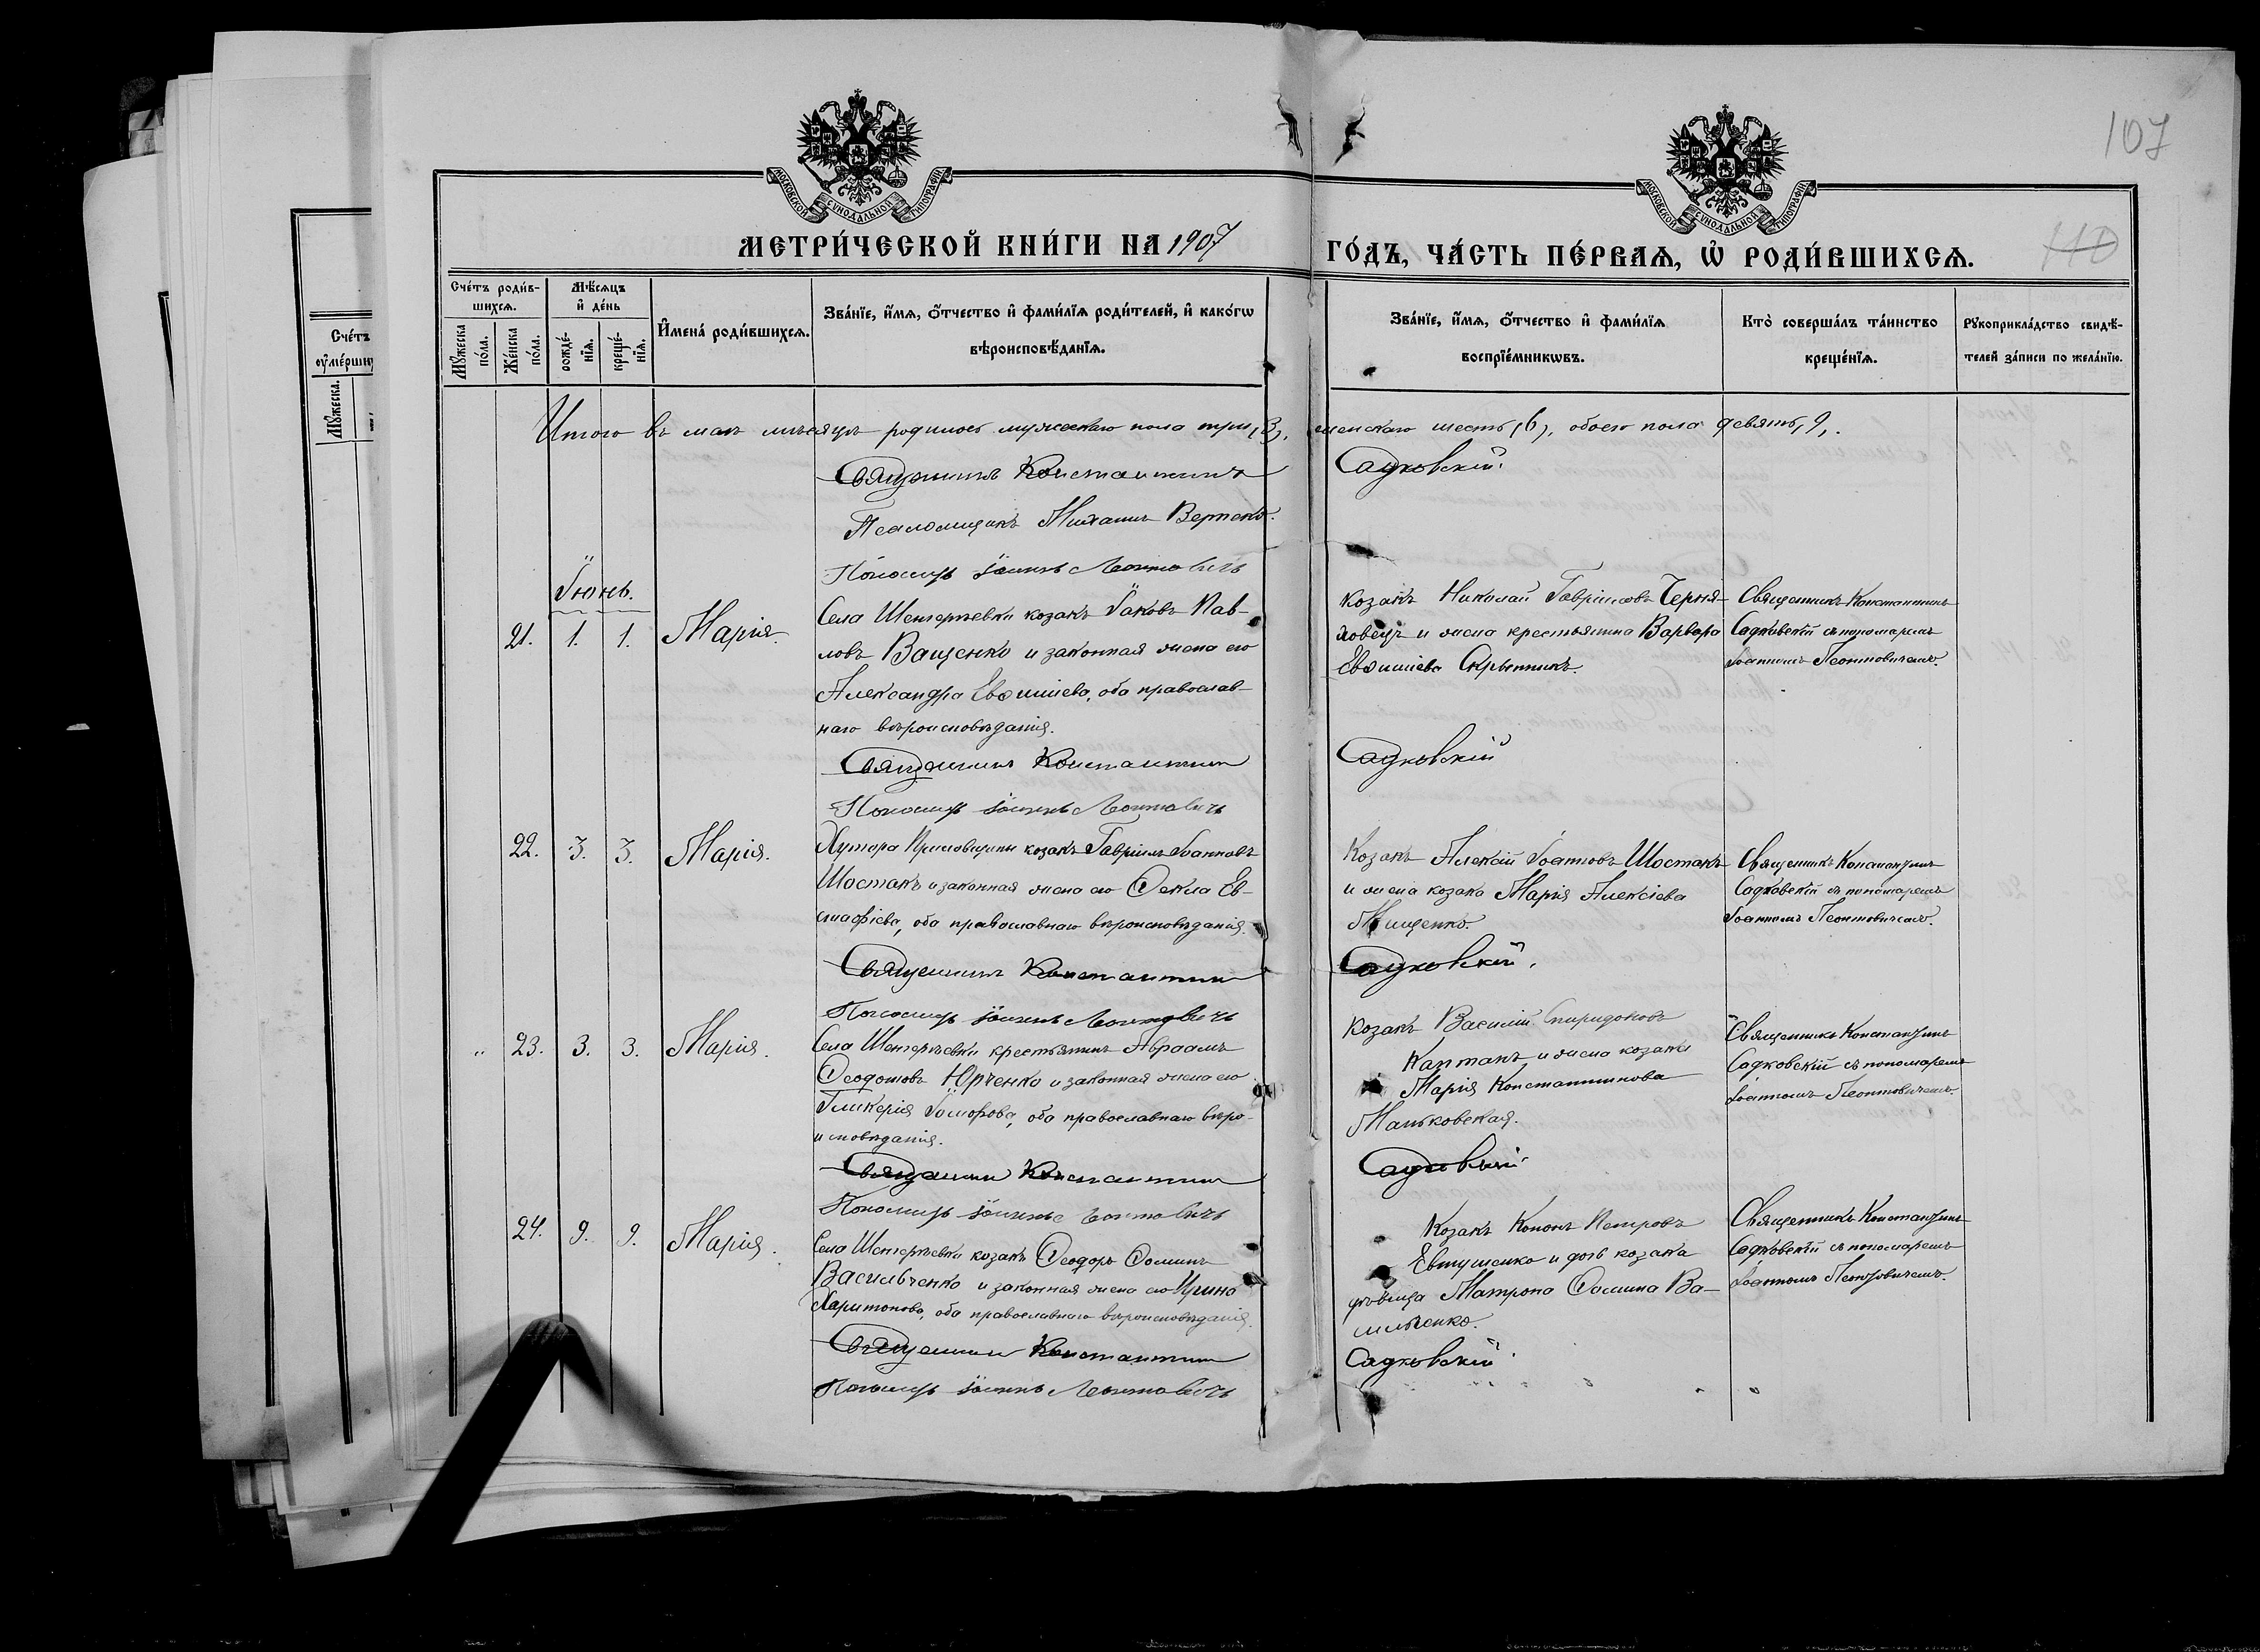 107
110
МОСКОВСКОЙ СѴНОДАЛЬНОЙ ТИПОГРАФІИ
МОСКОВСКОЙ СѴНОДАЛЬНОЙ ТИПОГРАФІИ
МЕТРИ́ЧЕСКОЙ КНИ́ГИ НА 1907 ГО́ДЪ, ЧА́СТЬ ПЕ́РВАѦ, Ѡ҆ РОДИ́ВШИХСѦ.
Сче́тъ
оуме́рших
Мꙋ́жеска.
Сче́тъ роди́в-
шихсѧ.
Мꙋ́жеска
по́ла.
Же́нска
по́ла.
Мѣ́сѧцъ
и҆ де́нь
рожде́-
нїѧ.
креще́-
нїѧ.
И҆мена́ роди́вшихсѧ.
Зва́нїе, и҆́мѧ, ѻ҆́тчество и҆ фами́лїѧ роди́телей, и҆ како́гѡ
вѣроисповѣ́данїѧ.
Зва́нїе, и҆́мѧ, ѻ҆́тчество и҆ фами́лїѧ
воспрїе́мникѡвъ.
Кто̀ соверша́лъ та́инство
креще́нїѧ.
Рꙋкоприкла́дство свидѣ́-
телей за́писи по жела́нїю.
Итого въ маѣ мѣсяцѣ родилось мужескаго пола три, (3), женскаго шесть, (6), обоего пола девять, 9,.
Священникъ Константинъ Садковскій.
Псаломщикъ Михаилъ
Пономарь Іоаннъ Леонтовичъ
Іюнь.
21. 1. 1. Марія.
Села козакъ Іаковъ Пав-
ловъ Ващенко и законная жена его
Александра Евѳиміева, оба православ-
наго вѣроисповѣданія.
Козакъ Николай Гавріиловъ Черня-
ховецъ и жена крестьянина Варвара
Евѳиміева Скрыпникъ.
Священникъ Константинъ
Садковскій съ пономаремъ
Іоанномъ Леонтовичемъ.
Священникъ Константинъ Садковскій
Пономарь Іоаннъ Леонтовичъ
22. 3. 3. Марія.
Хутора козакъ Гавріилъ Іоанновъ
Шостакъ и законная жена его Ѳекла Ев-
стафіева, оба православнаго вѣроисповѣданія.
Козакъ Алексій Іоанновъ Шостакъ
и жена козака Марія Алексіева
Мищенко.
Священникъ Константинъ
Садковскій съ пономаремъ
Іоанномъ Леонтовичемъ.
Священникъ Константинъ Садковскій.
Пономарь Іоаннъ Леонтовичъ
" 23. 3. 3. Марія.
Села крестьянинъ Авраамъ
Ѳеодотовъ Юрченко и законная жена его
Гликерія оба православнаго вѣро-
исповѣданія.
Козакъ Василій Спиридоновъ
Каптанъ и жена козака
Марія Константинова
Маньковская.
Священникъ Константинъ
Садковскій съ пономаремъ
Іоанномъ Леонтовичемъ.
Священникъ Константинъ Садковскій
Пономарь Іоаннъ Леонтовичъ
24. 9. 9. Марія.
Села козакъ Ѳеодоръ Ѳоминъ
Васильченко и законная жена его Ирина
Харитонова, оба православнаго вѣроисповѣданія.
Козакъ Кононъ Петровъ
Евтушенко и дочь козака
дѣвица Матрона Ѳомина Ва-
сильченко.
Священникъ Константинъ
Садковскій съ пономаремъ
Іоанномъ Леонтовичемъ.
Священникъ Константинъ Садковскій
Пономарь Іоаннъ Леонтовичъ